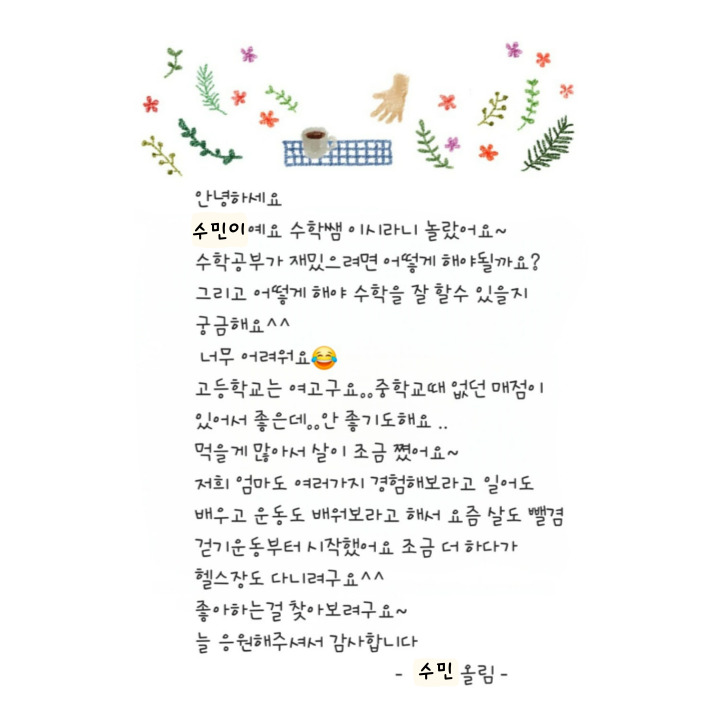 안녕하세요
수민이예요 수학쌤 이시라니 놀랐어요~
수학공부가 재밌으려면 어떻게 해야될까요?
그리고 어떻게 해야 수학을 잘 할수 있을지
궁금해요^^
너무 어려워요😂
고등학교는 여고구요。。중학교때 없던 매점이
있어서 좋은데。。안 좋기도해요 ..
먹을게 많아서 살이 조금 쪘어요~
저희 엄마도 여러가지 경험해보라고 일어도
배우고 운동도 배워보라고 해서 요즘 살도 뺄겸
걷기운동부터 시작했어요 조금 더 하다가
헬스장도 다니려구요^^
좋아하는걸 찾아보려구요~
늘 응원해주셔서 감사합니다
- 수민 올림 -